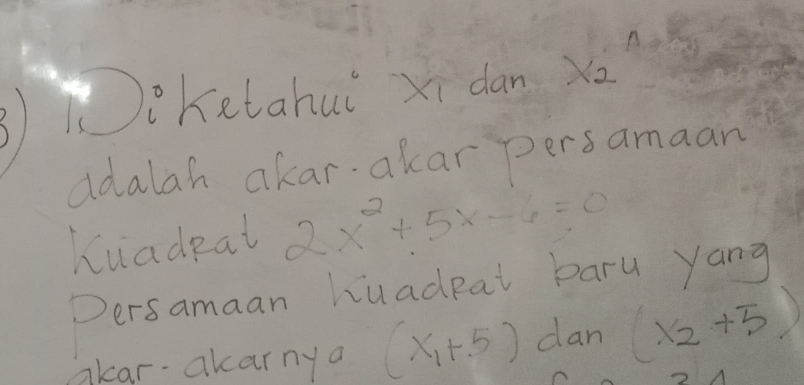 3) Diketahui x₁ dan x₂
adalah akar-akar persamaan
Kuadrat 2x² + 5x - 6 = 0
Persamaan kuadrat baru yang
akar-akarnya (x₁+5) dan (x₂+5)